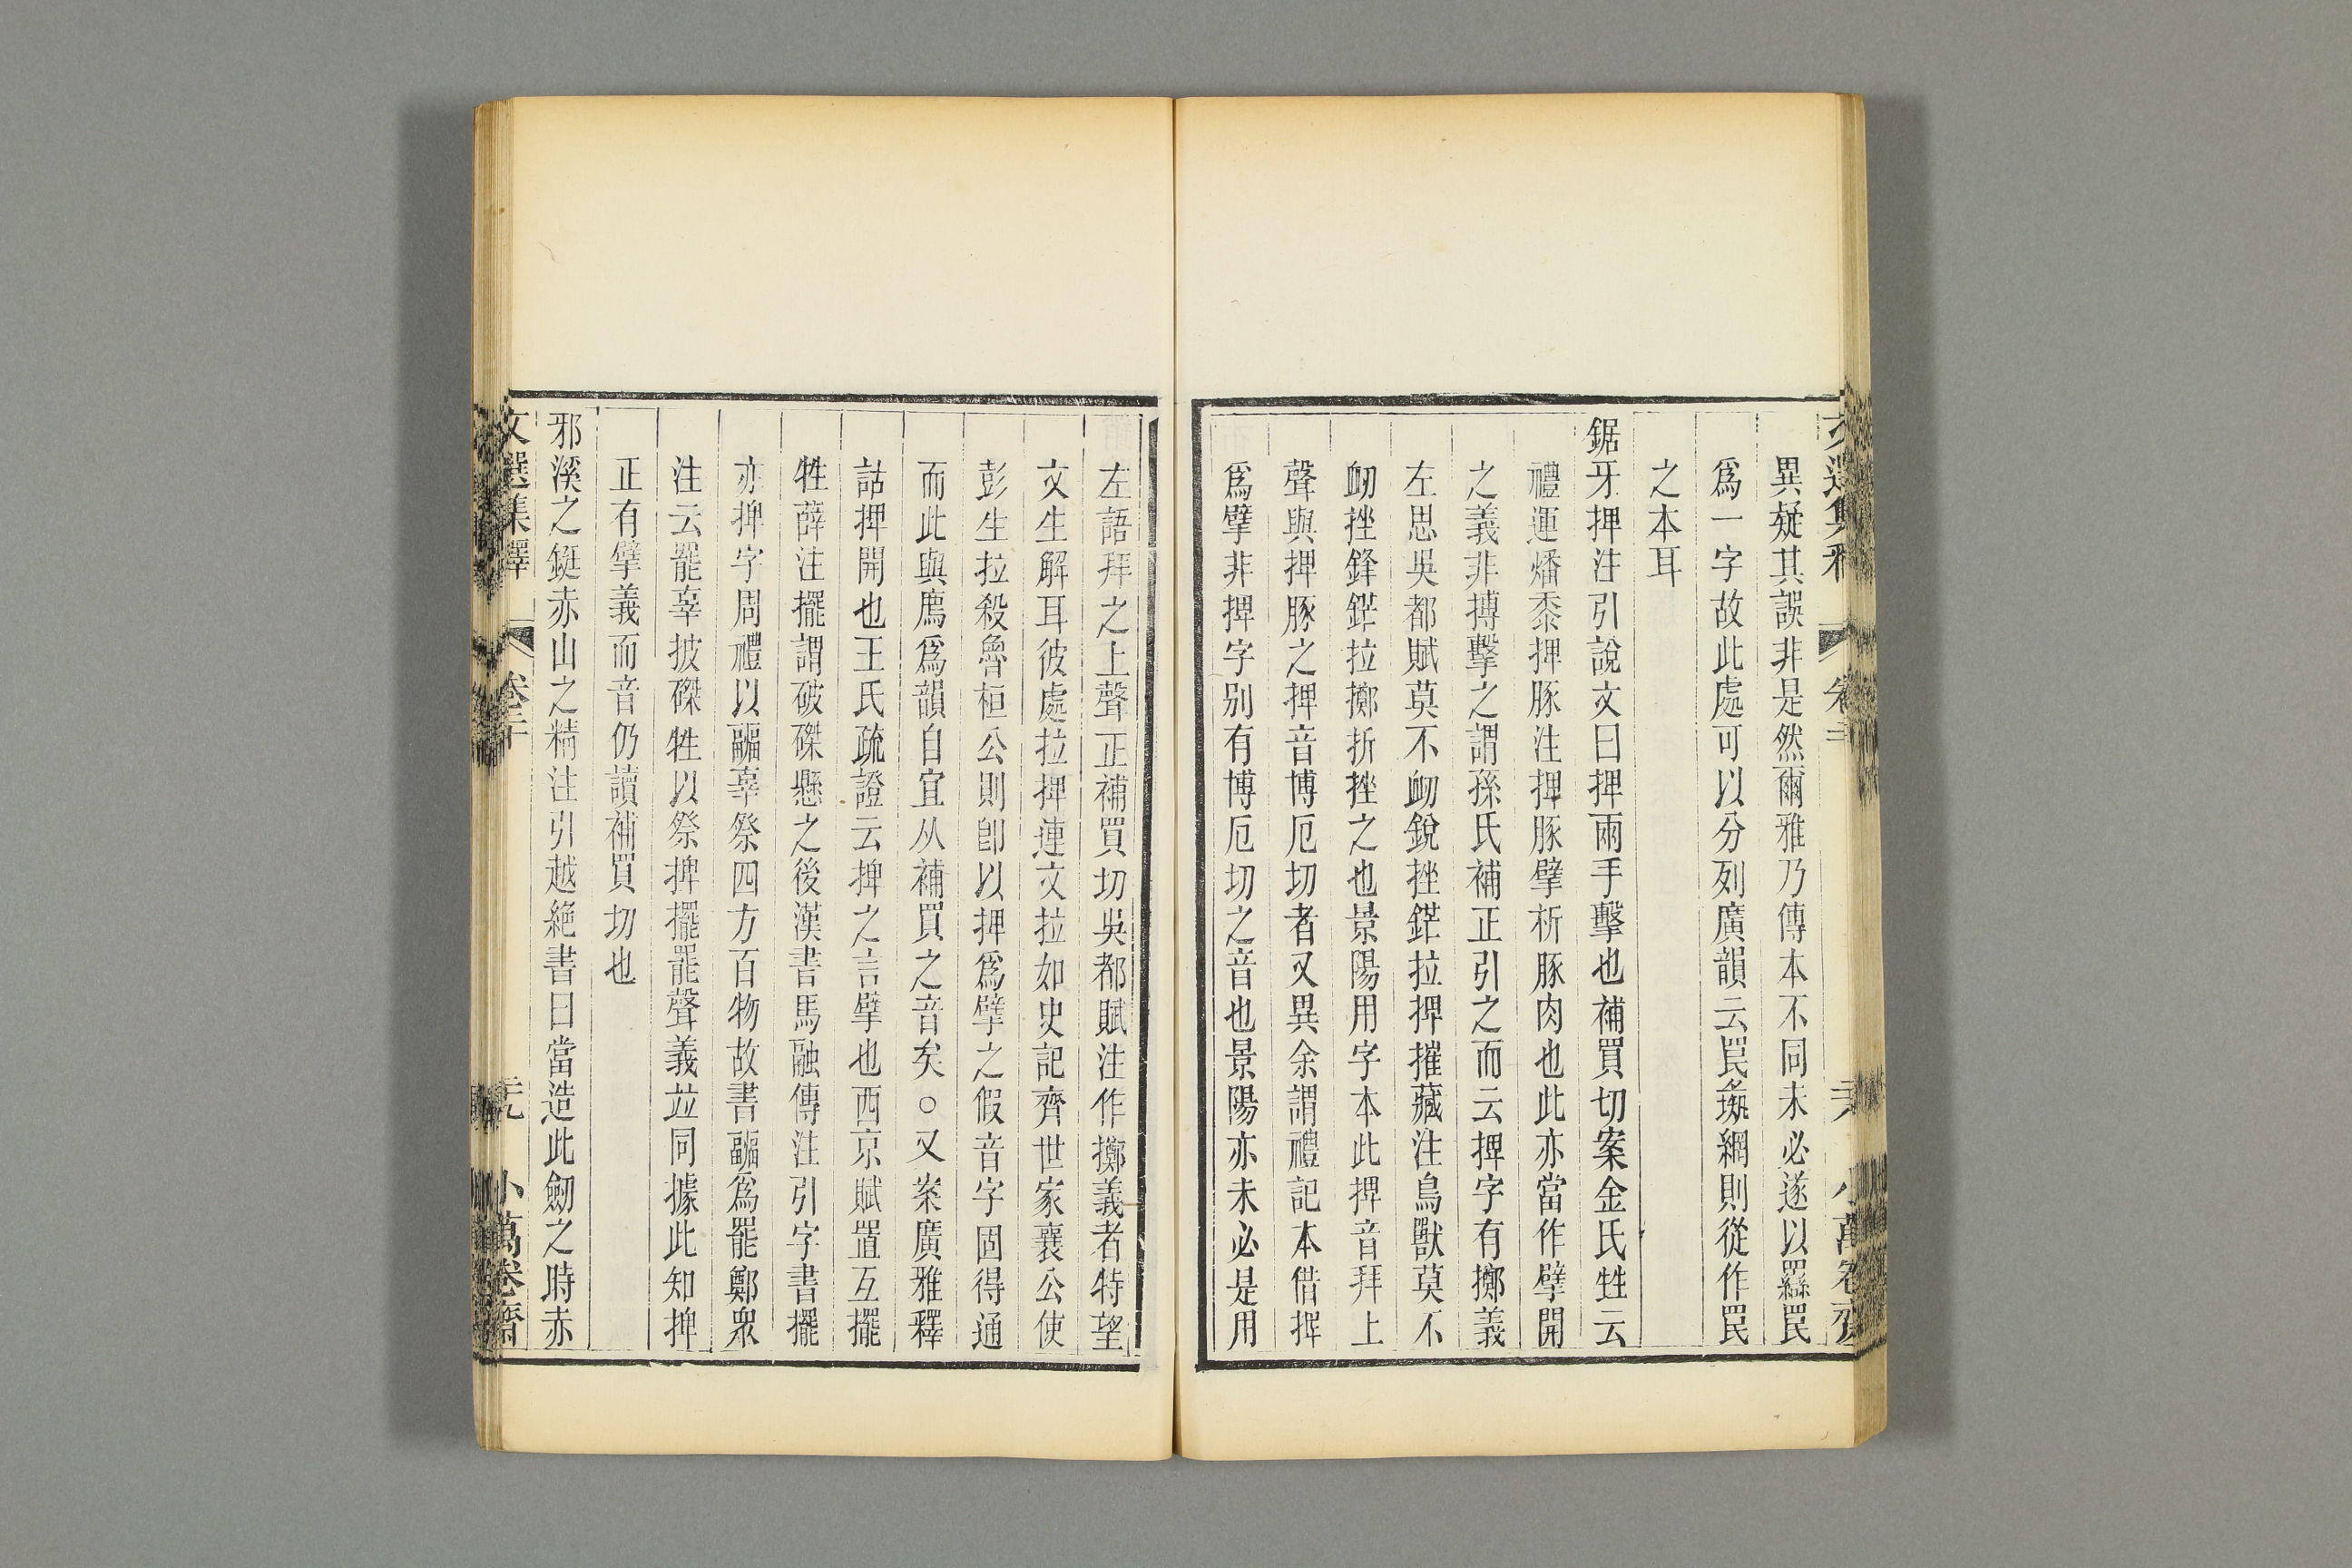 異疑其誤非是然爾雅乃傳本不同未必遂以羉罠
爲一字故此處可以分列廣韻云罠彘網則從作罠
之本耳
鋸牙捭注引說文曰捭兩手擊也補買切案金氏甡云
禮運燔黍捭豚注捭豚擘析豚肉也此亦當作擘開
之義非搏擊之謂孫氏補正引之而云捭字有擲義
左思吳都賦莫不衂銳挫鋩拉捭摧藏注鳥獸莫不
衂挫鋒鋩拉擲折挫之也景陽用字本此捭音拜上
聲與捭豚之捭音博厄切者又異余謂禮記本借捭
爲擘非捭字别有博厄切之音也景陽亦未必是用
左語拜之上聲正補買切吳都賦注作擲義者特望
文生解耳彼處拉捭連文拉如史記齊世家襄公使
彭生拉殺魯桓公則卽以捭爲擘之假音字固得通
而此與廌爲韻自宜从補買之音矣○又案廣雅釋
詁捭開也王氏疏證云捭之言擘也西京賦罝互擺
牲薛注擺謂破磔懸之後漢書馬融傳注引字書擺
亦捭字周禮以疈辜祭四方百物故書疈爲罷鄭眾
注云罷辜披磔牲以祭捭擺罷聲義竝同據此知捭
正有擘義而音仍讀補買切也
邪溪之鋌赤山之精注引越絕書曰當造此劒之時赤
文選集釋 卷二十 元 小萬卷齋